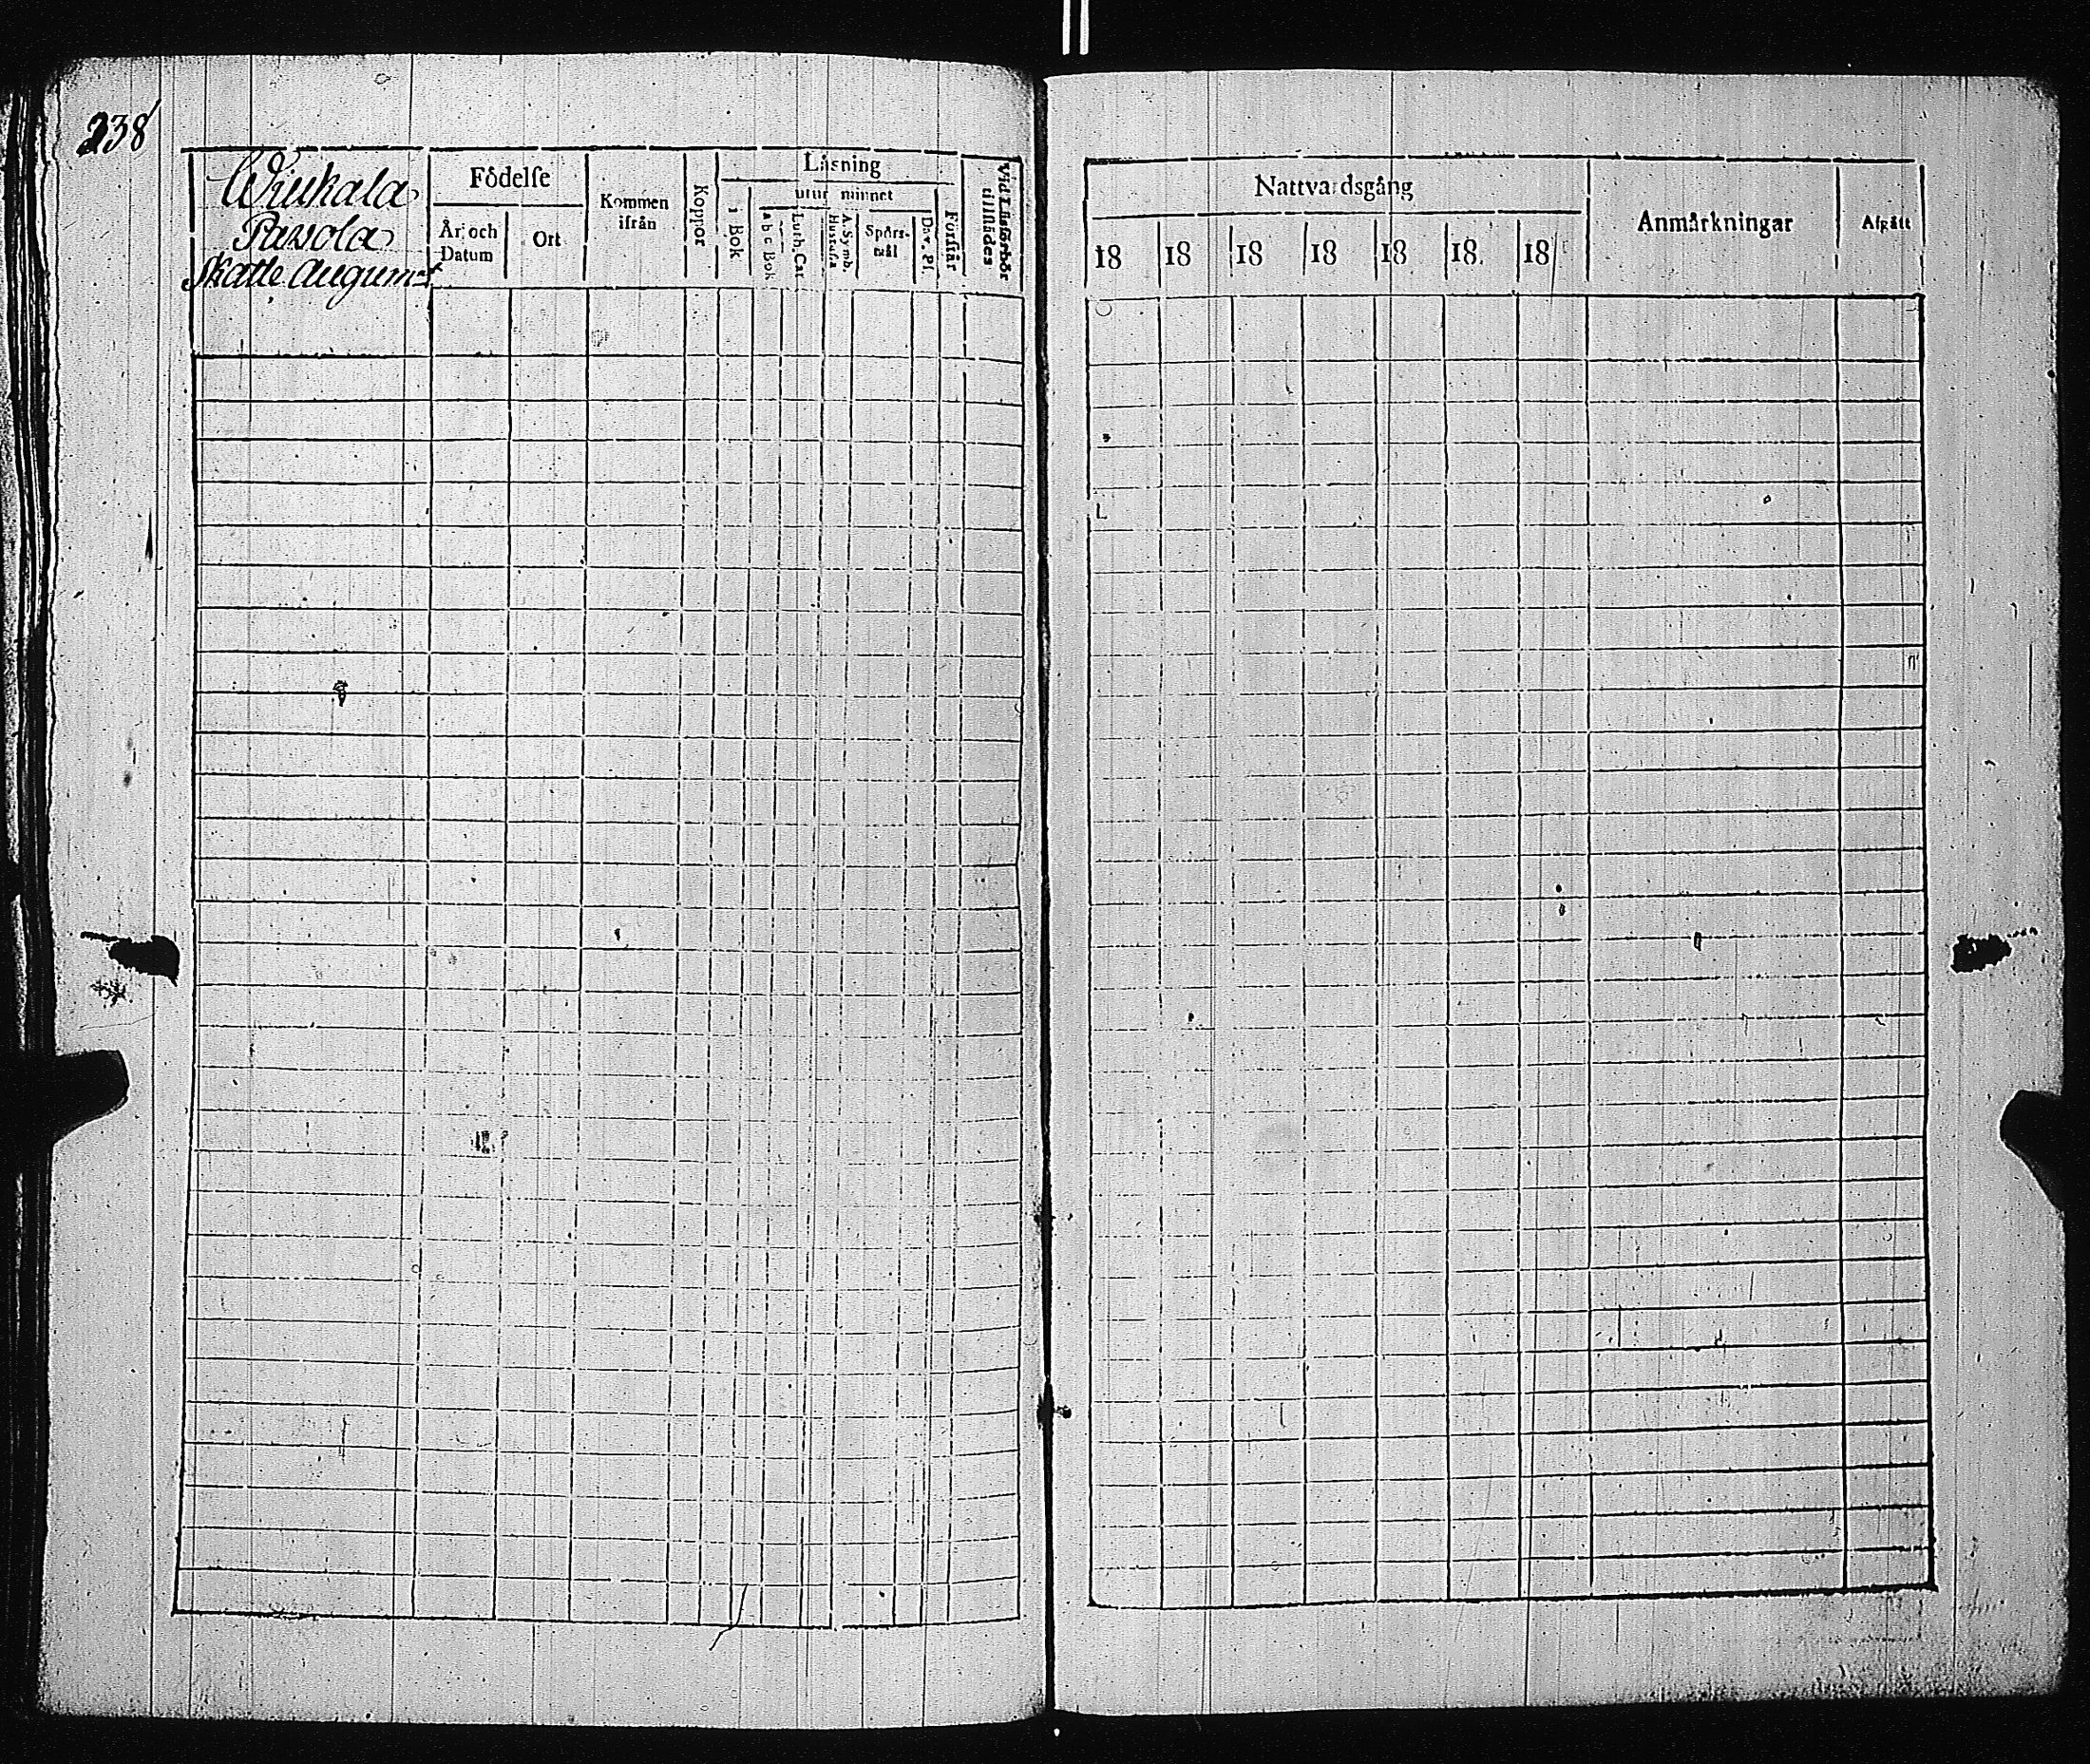 238
Wiukala
Pavola
Skatte Augum.t
Födelse
År och Datum
Ort
Kommen ifrån
Koppor
Läsning
utur minnet
i Bok
a b c Bok
Luth. Cat.
Hustafla
A. Symb.
Spörs-mål
Dav. Ps.
Förstår
Vid Läsförhör tillstädes
Nattvardsgång
18 18 18 18 18 18 18
Anmärkningar
Afgått